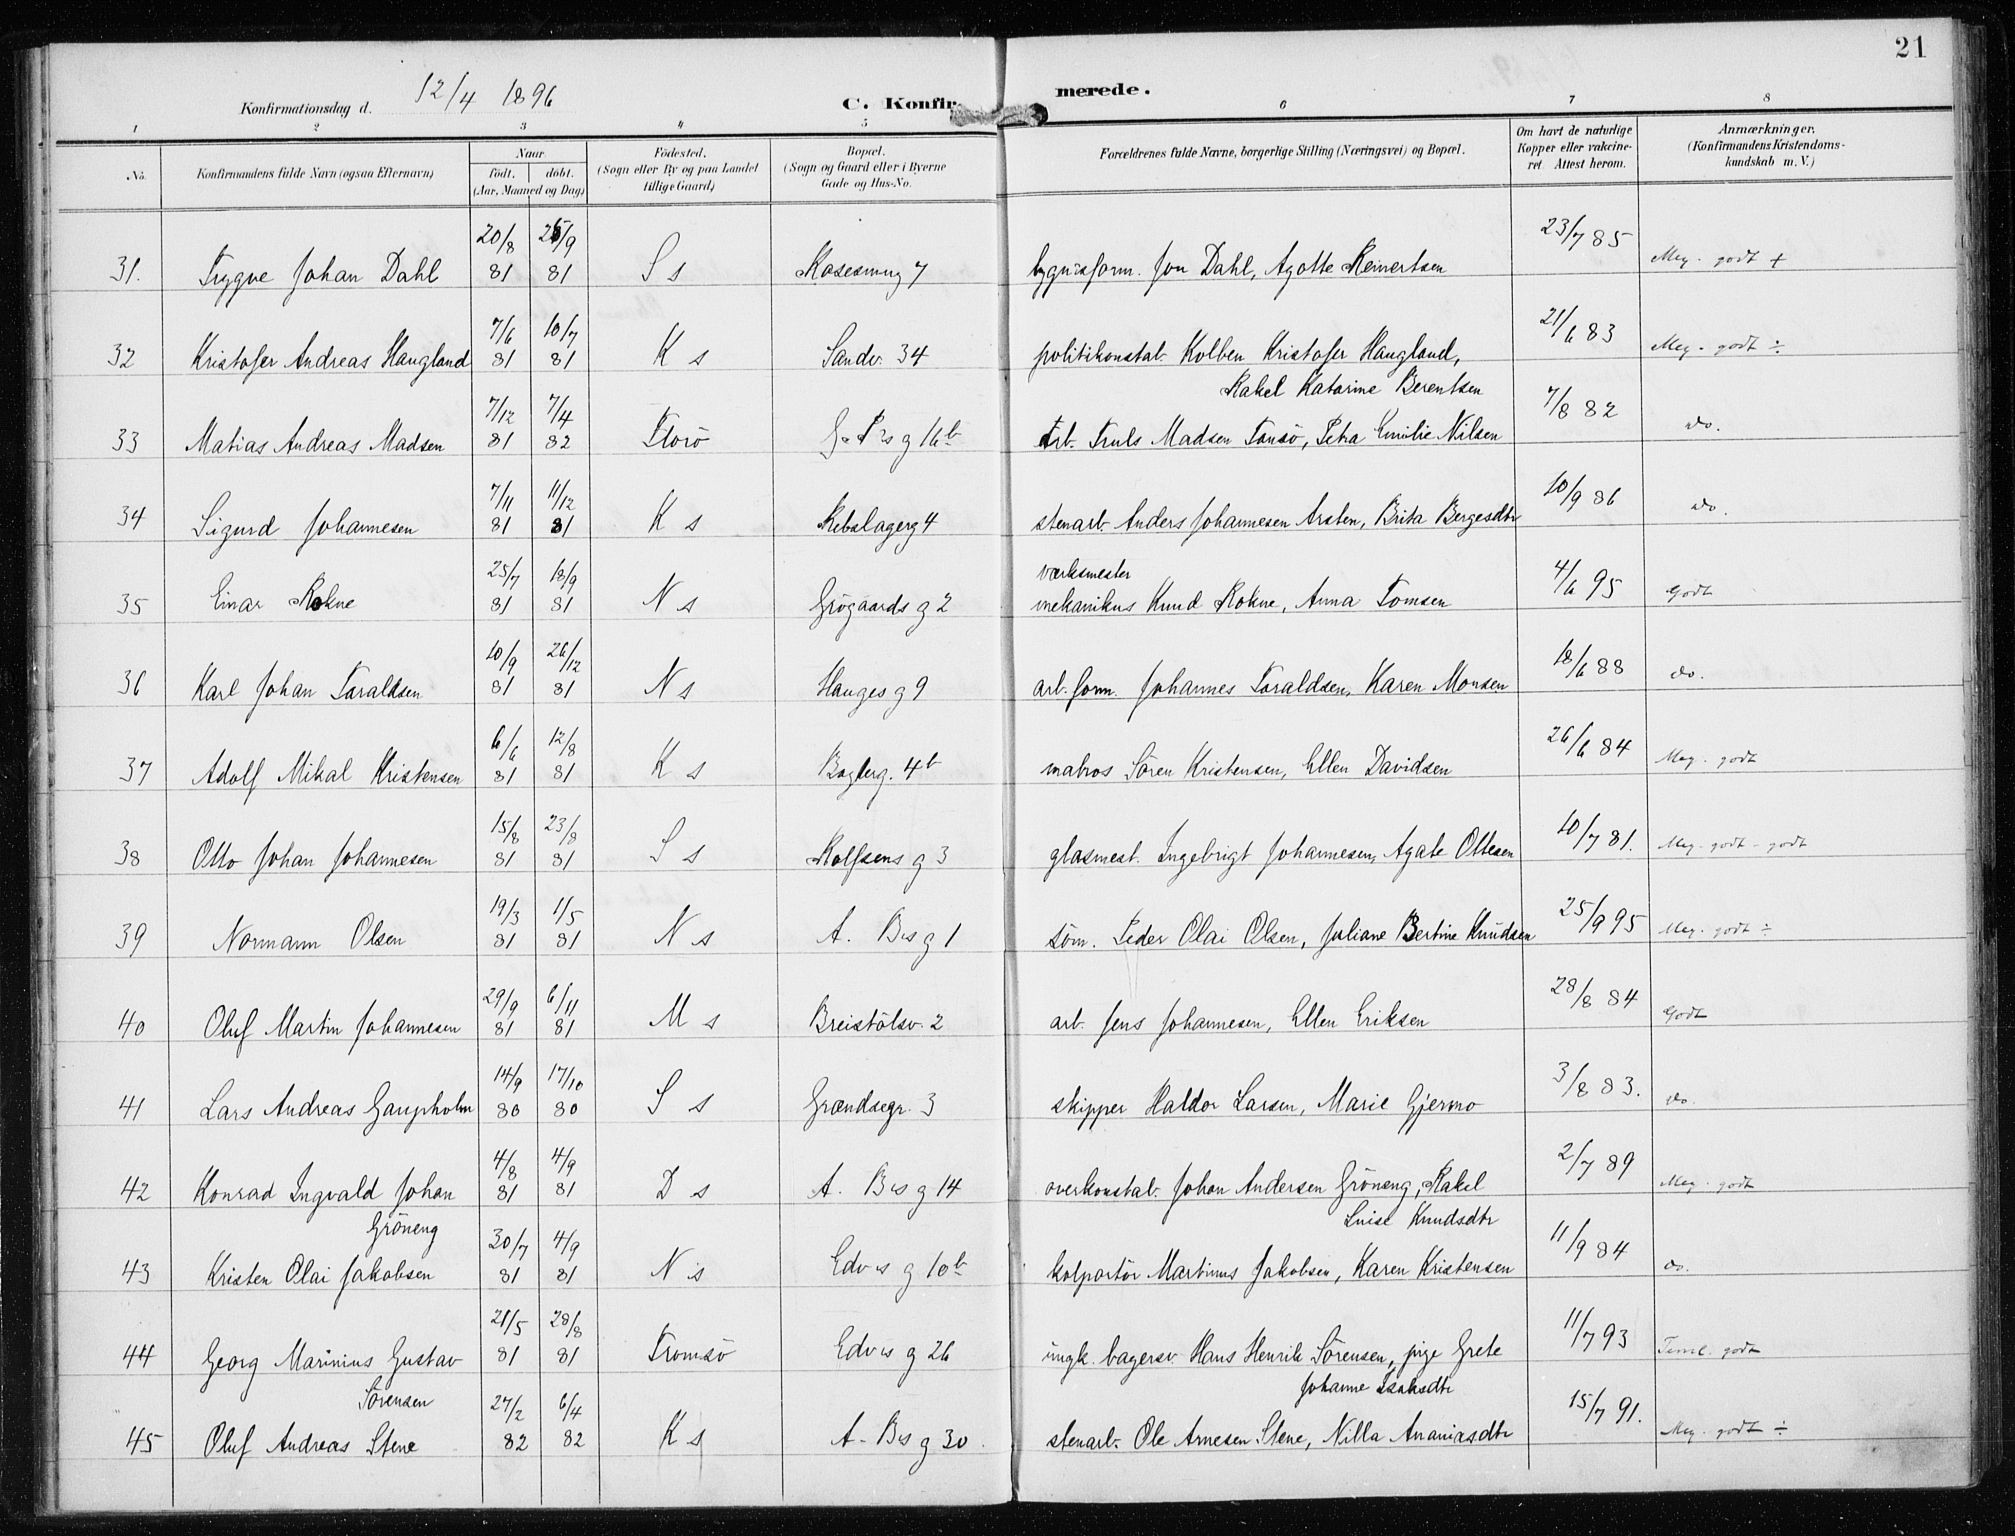 21
Konfirmationsdag d. 12/4 1896 C. Konfirmerede.
1 2 3 4 5 6 7 8
No. Konfirmandens fulde Navn (ogsaa Efternavn) Naar født. døbt. (Aar, Maaned og Dag) Fødested. (Sogn eller By og paa Landet tillige Gaard) Bopæl. (Sogn og Gaard eller i Byerne Gade og Hus-No. Forældrenes fulde Navne, borgerlige Stilling (Næringsvei) og Bopæl. Om havt de naturlige Kopper eller vakcineret. Attest herom. Anmærkninger. (Konfirmandens Kristendomskundskab m. V.)
31. Trygve Johan Dahl 20/8 81 /9 81 S s 7 bygnisform. Jon Dahl, Agotte Reinertsen 23/7 85 Meg. godt +
32 Kristofer Andreas Haugland 7/6 81 10/7 81 K s Sandv. 34 politikonstab. Kolben Kristofer Haugland,
Rakel Katarine Berentsen 21/6 83 Meg. godt ÷
33 Matias Andreas Madsen 7/12 81 7/4 82 Florö g 16b arb. Truls Madsen Tansö, Petra Emilie Nilsen 7/8 82 do.
34 Sigurd Johannesen 7/11 81 11/12 81 K s Rebslagerg 4 stenarb. Anders Johannesen Arsten, Brita Bergesdtr 10/9 86 do.
35 Einar Rokne 25/7 81 18/9 81 N s Grögaards g 2 værksmester
mekanikus Knud Rokne, Anna Tomsen 4/6 95 Godt
36 Karl Johan Taraldsen 10/9 81 26/12 81 N s Hauges g 9 arb. form. Johannes Taraldsen, Karen Monsen 18/6 88 do.
37 Adolf Mikal Kristensen 6/6 81 12/8 81 K s Baglerg. 4b matros Sören Kristensen, Ellen Davidsen 26/6 84 Meg. godt
38 Otto Johan Johannesen 15/8 81 23/8 81 S s Rolfsens g 3 glasmest. Ingebrigt Johannesen, Agate Ottesen 10/7 81. Meg. godt - godt
39 Normann Olsen 19/3 81 1/5 81 N s A. Bs g 1 söm. Peder Olai Olsen, Juliane Bertine Knudsen 25/9 95 Meg. godt ÷
40 Oluf Martin Johannesen 29/9 81 6/11 81 M s Breistölsv. 2 arb. Jens Johannesen, Ellen Eriksen 28/8 84 Godt
41 Lars Andreas Gaupholm 14/9 80 17/10 80 S s Grændsegr. 3 skipper Haldor Larsen, Marie Gjermo 3/8 83. do.
42 Konrad Ingvald Johan
Gröneng 4/8 81 4/9 81 D s A. Bs g 14 overkonstab. Johan Andersen Gröneng, Rakel
Luise Knudsdtr 2/7 89 Meg. godt
43 Kristen Olai Jakobsen 30/7 81 4/9 81 N s Edvs g 10b kolportör Martinus Jakobsen, Karen Kristensen 11/9 84 do.
44 Georg Marinius Gustav
Sörensen 21/5 81 28/8 81 Tromsö Edvs g 26 ungk. bagersv. Hans Henrik Sörensen, pige Grete
Johanne Isaksdtr 11/7 93 Teml. godt
45 Oluf Andreas Stene 27/2 82 6/4 82 K s A. Bs g 30 stenarb. Ole Arnesen Stene, Nilla Ananiasdtr 15/7 91. Meg. godt ÷